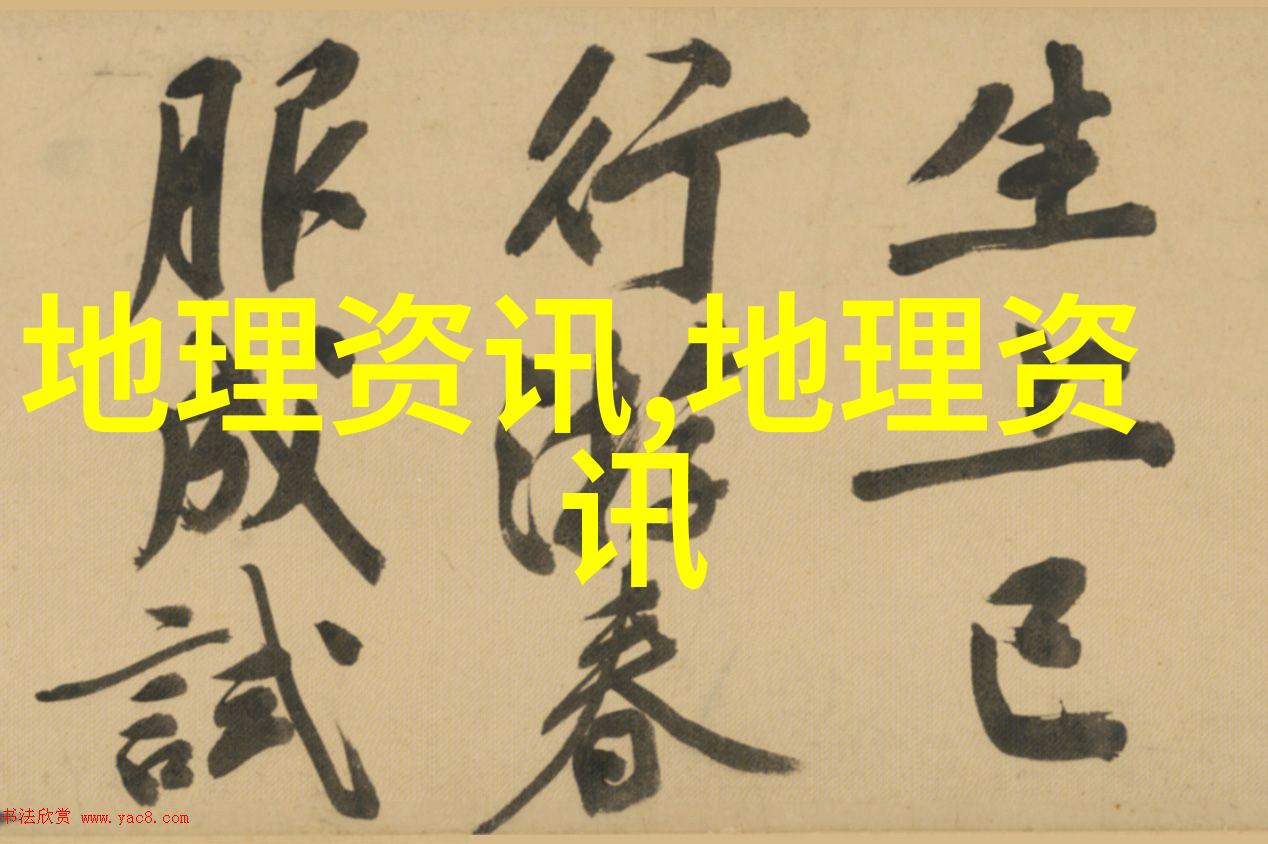 生一已
行游春
服成試
地理资讯,地理资
讯
书法欣赏 www.yac8.com